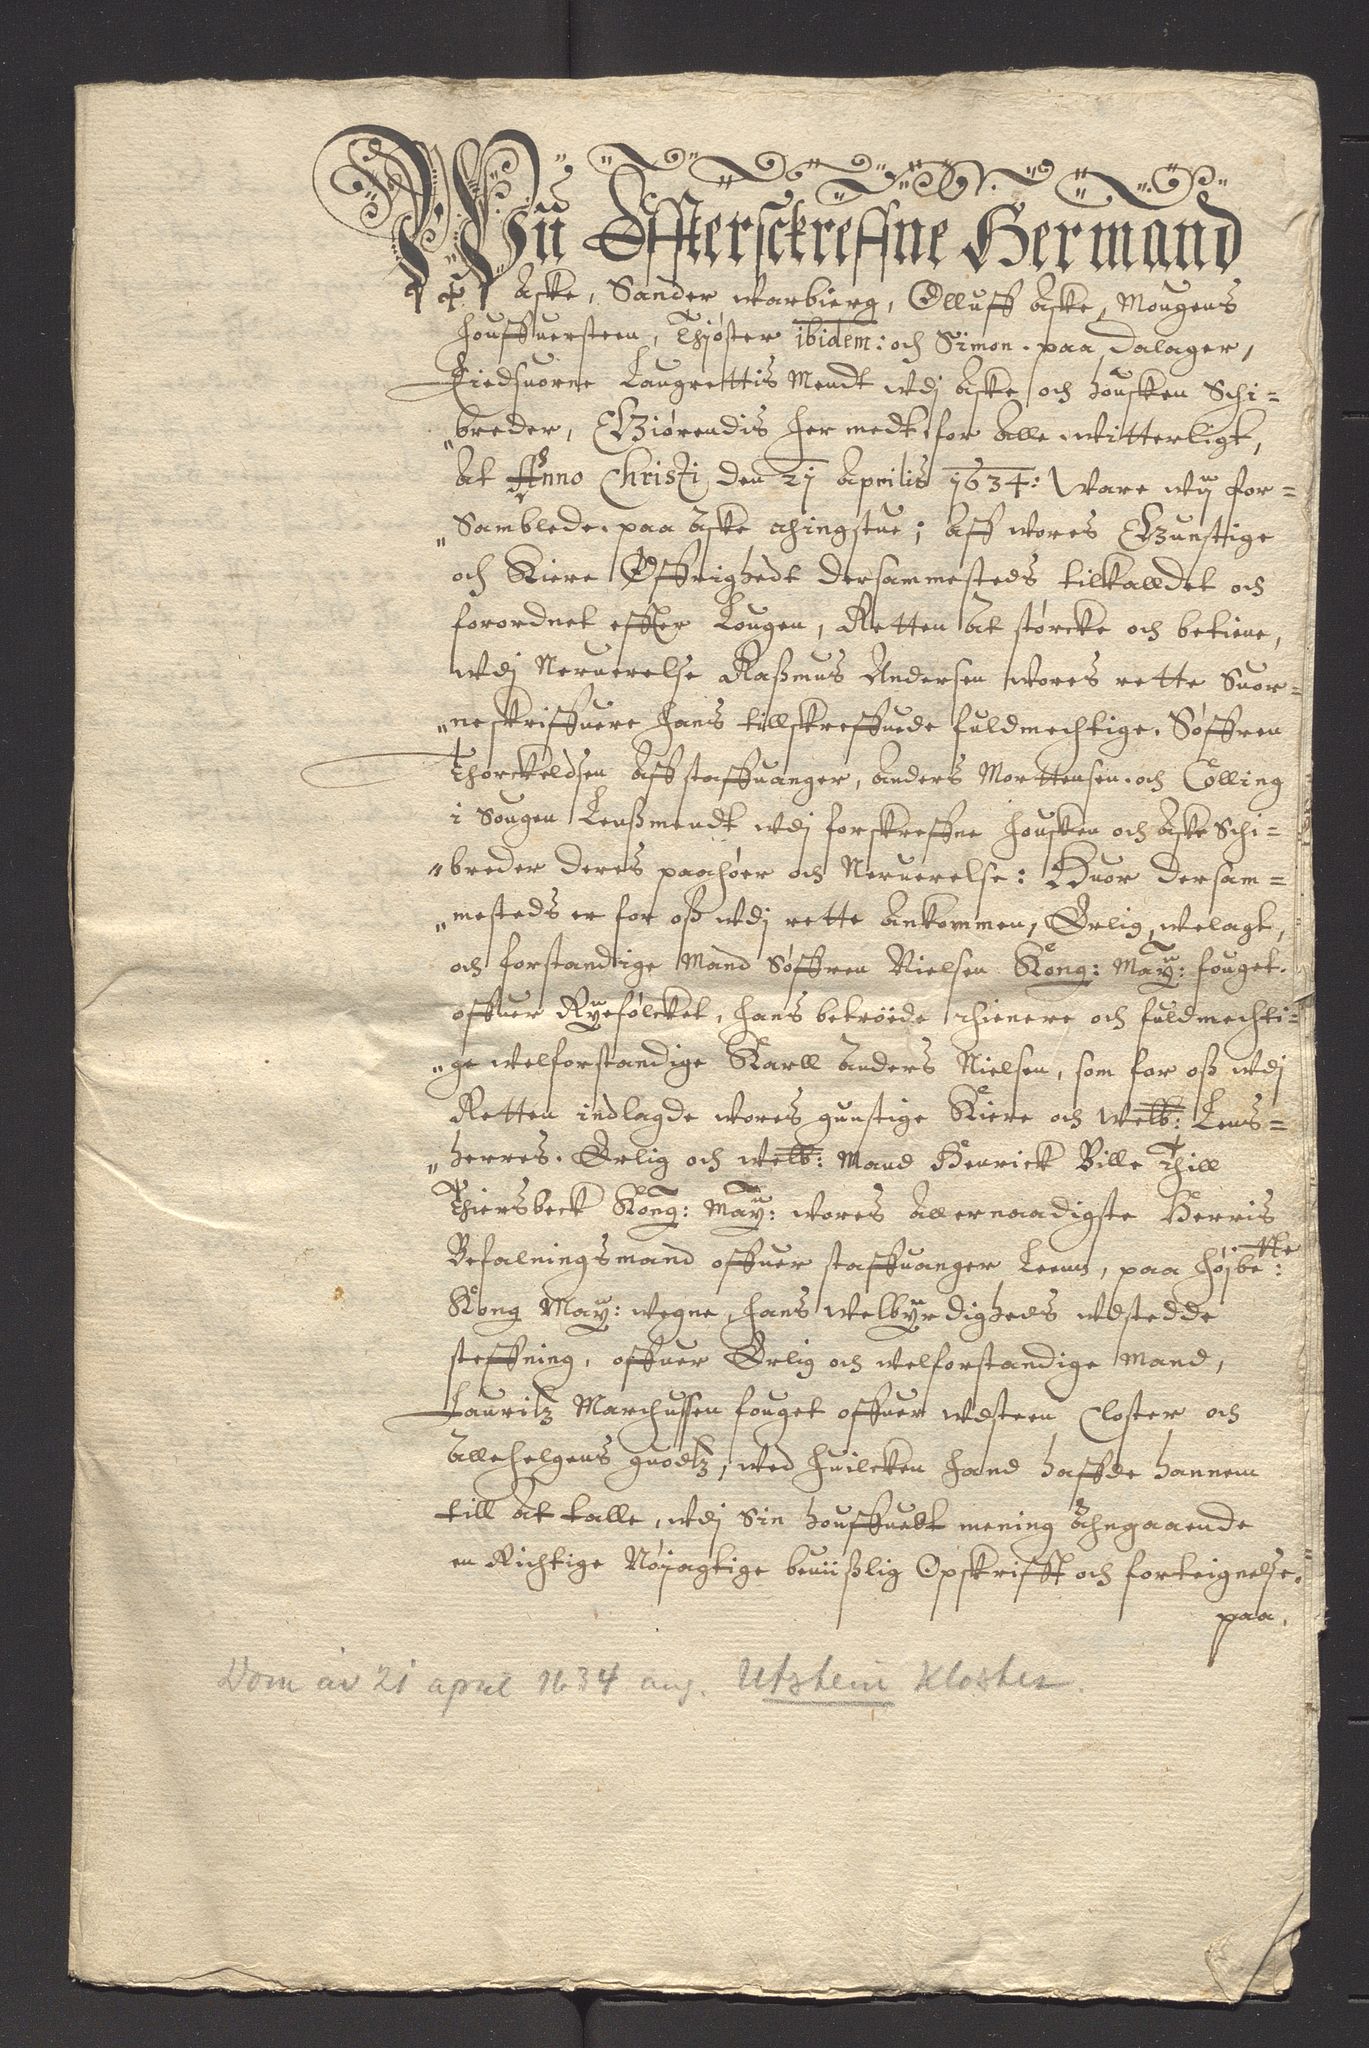 Wii Effterschreffne Hermand
Aske, Sander Warbierg, Olluff Aske, Mougens
Houffuersteen, Thjøster ibidem: och Simon paa Dalager,
Eiedsuorne Laugrettis Mendt wdj Aske och Housken Schi=
breder, Giørendis her medt for Alle Witterligt,
At Anno Christi den 21 Aprilis 1634: Ware wij for=
Samblede paa Aske thingstue; Aff wores Gunstige
och Kiere Øffrighedt dersammesteds tilkalldet och
forordnet effter Lougen, Retten At størcke och betiene,
wdj Neruerelse Raßmus Andersen wores rette Suor=
neskriffuere hans tillskreffuede fuldmechtige Søffren
Thorckeldsen Aff staffuanger, Anders Morttensen och Colling
i Sougen Lenßmendt wdj forskreffne Housken och Aske Schi=
breder deres paahøer och Neruerelse: Huor dersam=
mesteds er for oß wdj rette Ankommen, Ørlig, welagt,
och forstandige Mand Søffren Nielsen Kong: May: fouget
offuer Ryefølcket, hans betröede thienere och fuldmechti=
ge welforstandige Karll Anders Nielsen, som for oß wdj
Retten indlagde wores gunstige Kiere och Welb: Lens=
herres. Ørlig och welb: Mand Henrick Bille Thill
Thiersbeck Kong: May: wores Allernaadigste Herris
Befalningsmand offuer staffuanger Leenn, paa Højbe:te
Kong May: wegne, hans welbyrdigheds wdstedde
steffning, offuer Ørlig och welforstandige Mand,
Lauritz Marchussen fouget offuer wdsteen Closter och
Allehelgens guodtz, wed huilcken hand haffde hannem
till at talle, wdj Sin houffuedt mening Ahngaaende
en Richtige Nöyagtige beuiißlig Opskrifft och forteignelse
paa.
Dom av 21 april 1634 ang. Utstein Kloster.